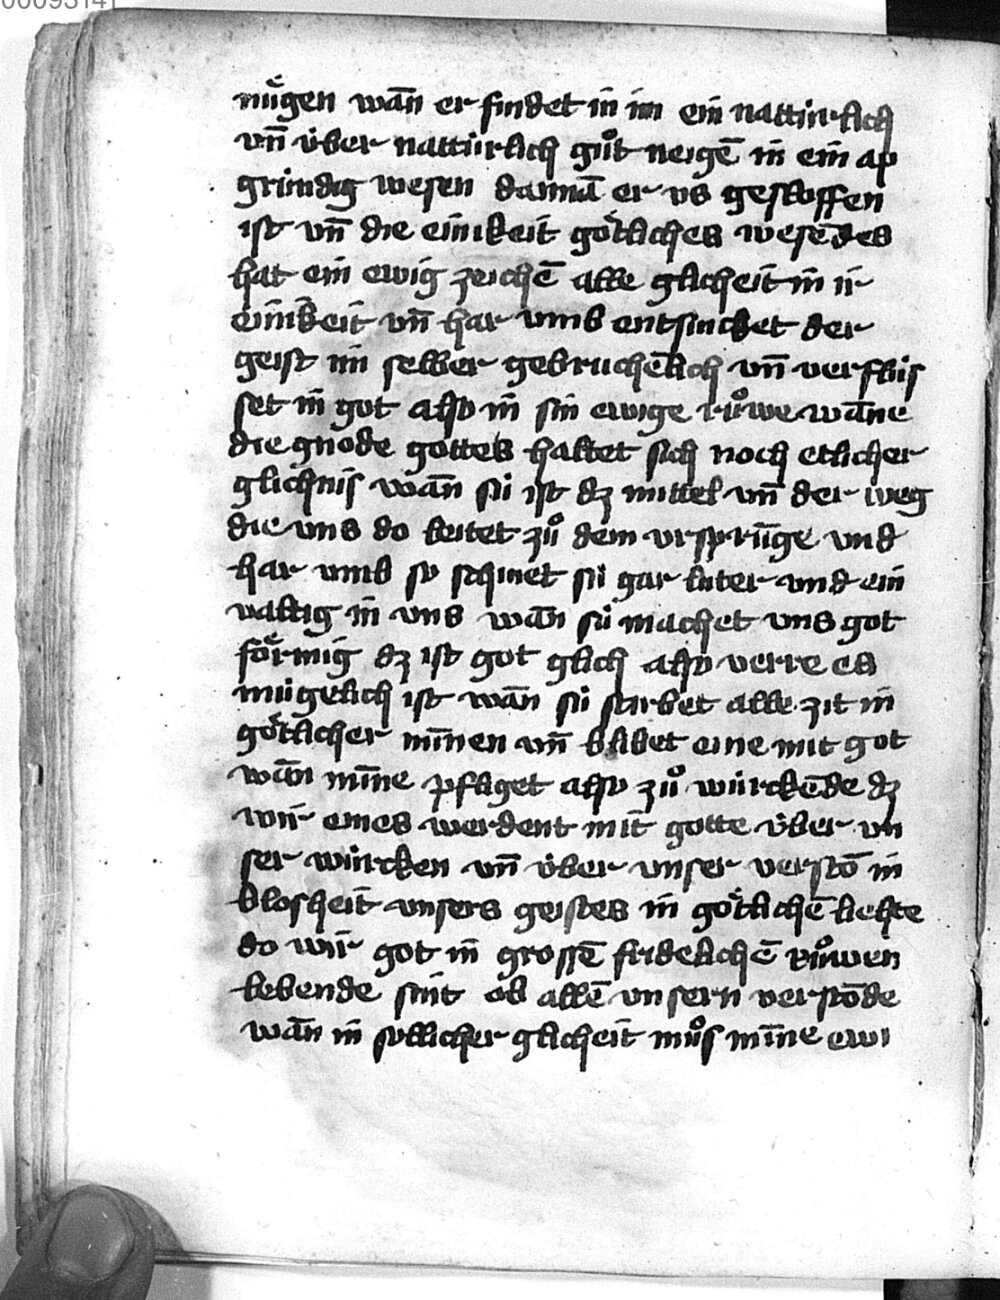 00093141
mu̍gen wan̄ er findet in im ein nattúrlich
vn̄ úber nattúrlich gůt neigē in ein ap
gründig wesen dannā er vs geflossen
ist vn̄ die einikeit gǒtliches wesēdes
hat ein ewig zeichē alle glicheit in ir
einikeit vn̄ har vmb entsincket der
geist im selber gebruchēlich vn̄ verflús
set in got also in sin ewige růwe wāne
die gnode gottes haltet sich noch etlicher
glichnis wan̄ sú ist dz mittel vn̄ der weg
die vns do leitet zů dem vrsprūge vnd
har vmb so schinet sú gar luter vnd ein
valtig in vns wan̄ sú machet vns got
fo̍rmig dz ist got glich also verre es
múgelich ist wan̄ sú stirbet alle zit in
go̍tlicher min̄en vn̄ blibet eine mit got
wan̄ min̄e pfliget also zů würckēde dz
wir eines werdent mit gotte úber vn
ser würcken vn̄ úber vnser verstō in
blosheit vnsers geistes in go̍tlichē liehte
do wir got in grossē fridelichē růwen
lebende sint ob allē vnsern verstōde
wan̄ in sollicher glicheit můs min̄e ewi